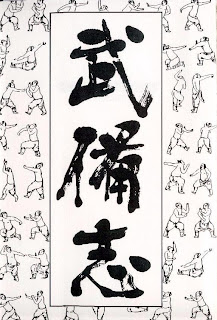 武備志